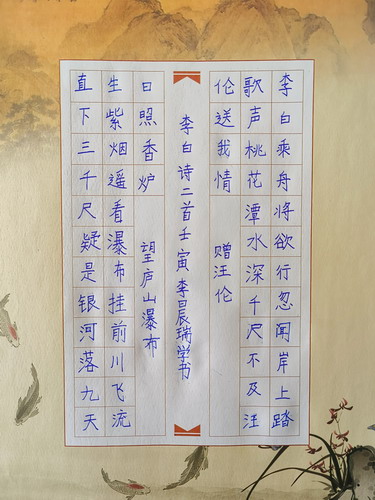 李白乘舟将欲行忽闻岸上踏
歌声桃花潭水深千尺不及汪
伦送我情 赠汪伦
李白诗二首壬寅李晨瑞学书
日照香炉 望庐山瀑布
生紫烟遥看瀑布挂前川飞流
直下三千尺疑是银河落九天